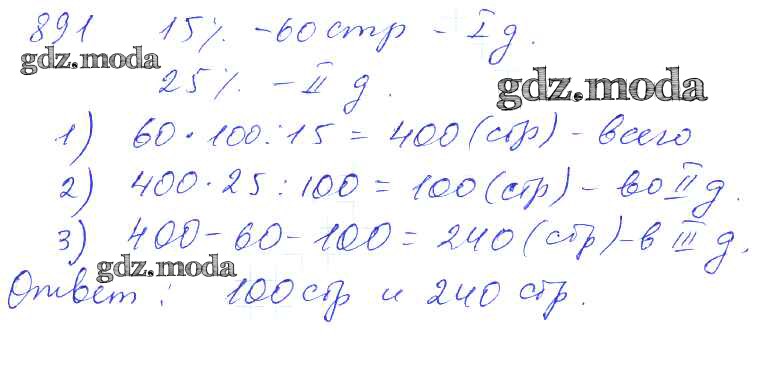 891 15% - 60 стр - I д.
gdz.moda
25% - II д.
gdz.moda
1) 60 · 100 : 15 = 400 (стр) - всего
2) 400 · 25 : 100 = 100 (стр) - во II д.
3) 400 - 60 - 100 = 240 (стр) - в III д.
gdz.moda
Ответ : 100 стр и 240 стр.